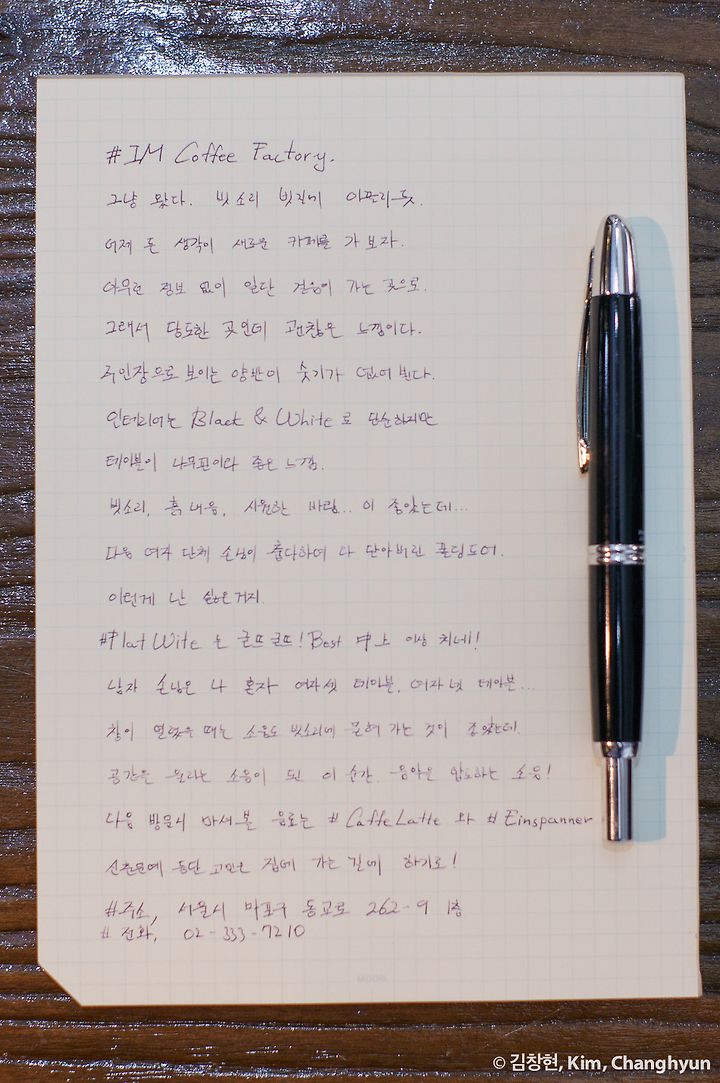 #IM Coffee Factory.
그냥 왔다. 빗소리 빗길에 이끌리듯.
어제 든 생각이 새로운 카페를 가 보자.
아무런 정보 없이 일단 걸음이 가는 곳으로.
그래서 당도한 곳인데 괜찮은 느낌이다.
주인장으로 보이는 양반이 숫기가 없어 뵌다.
인테리어는 Black & White로 단순하지만
테이블이 나무판이라 좋은 느낌.
빗소리, 흙내음, 시원한 바람.. 이 좋았는데...
다음 여자 단체 손님이 출다하여 다 닫아버린 폴딩도어.
이런게 난 싫은거지.
#Flat Wite 은 굳뜨 굳뜨! Best 中上 이상 치네!
남자 손님은 나 혼자 여자 셋 테이블, 여자 넷 테이블...
창이 열렸을 때는 소음도 빗소리에 묻혀 가는 것이 좋았는데.
공간을 울리는 소음이 된 이 순간. 음악을 압도하는 소음!
다음 방문시 마셔 본 음료는 #CaffeLatte 와 #Einspanner
신춘문예 등단 고민은 집에 가는 길에 하기로!
#주소, 서울시 마포구 동교로 262-9 1층
#전화, 02-333-7210
© 김창현, Kim, Changhyun